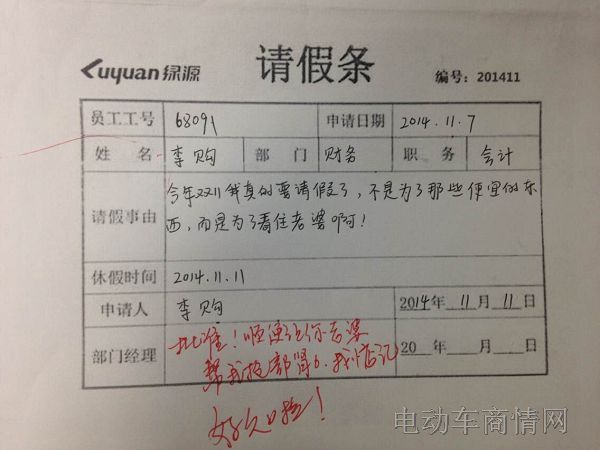 Luyuan 绿源 请假条 编号：201411
员工工号 68091 申请日期 2014.11.7
姓名 李购 部门 财务 职务 会计
请假事由 今年双11我真的要请假了，不是为了那些便宜的东
西，而是为了看住老婆啊！
休假时间 2014.11.11
申请人 李购 2014年11月11日
部门经理 批准！顺便让你老婆 20 年 月 日
帮我抢部肾6.我惦记
好久啦！
电动车商情网